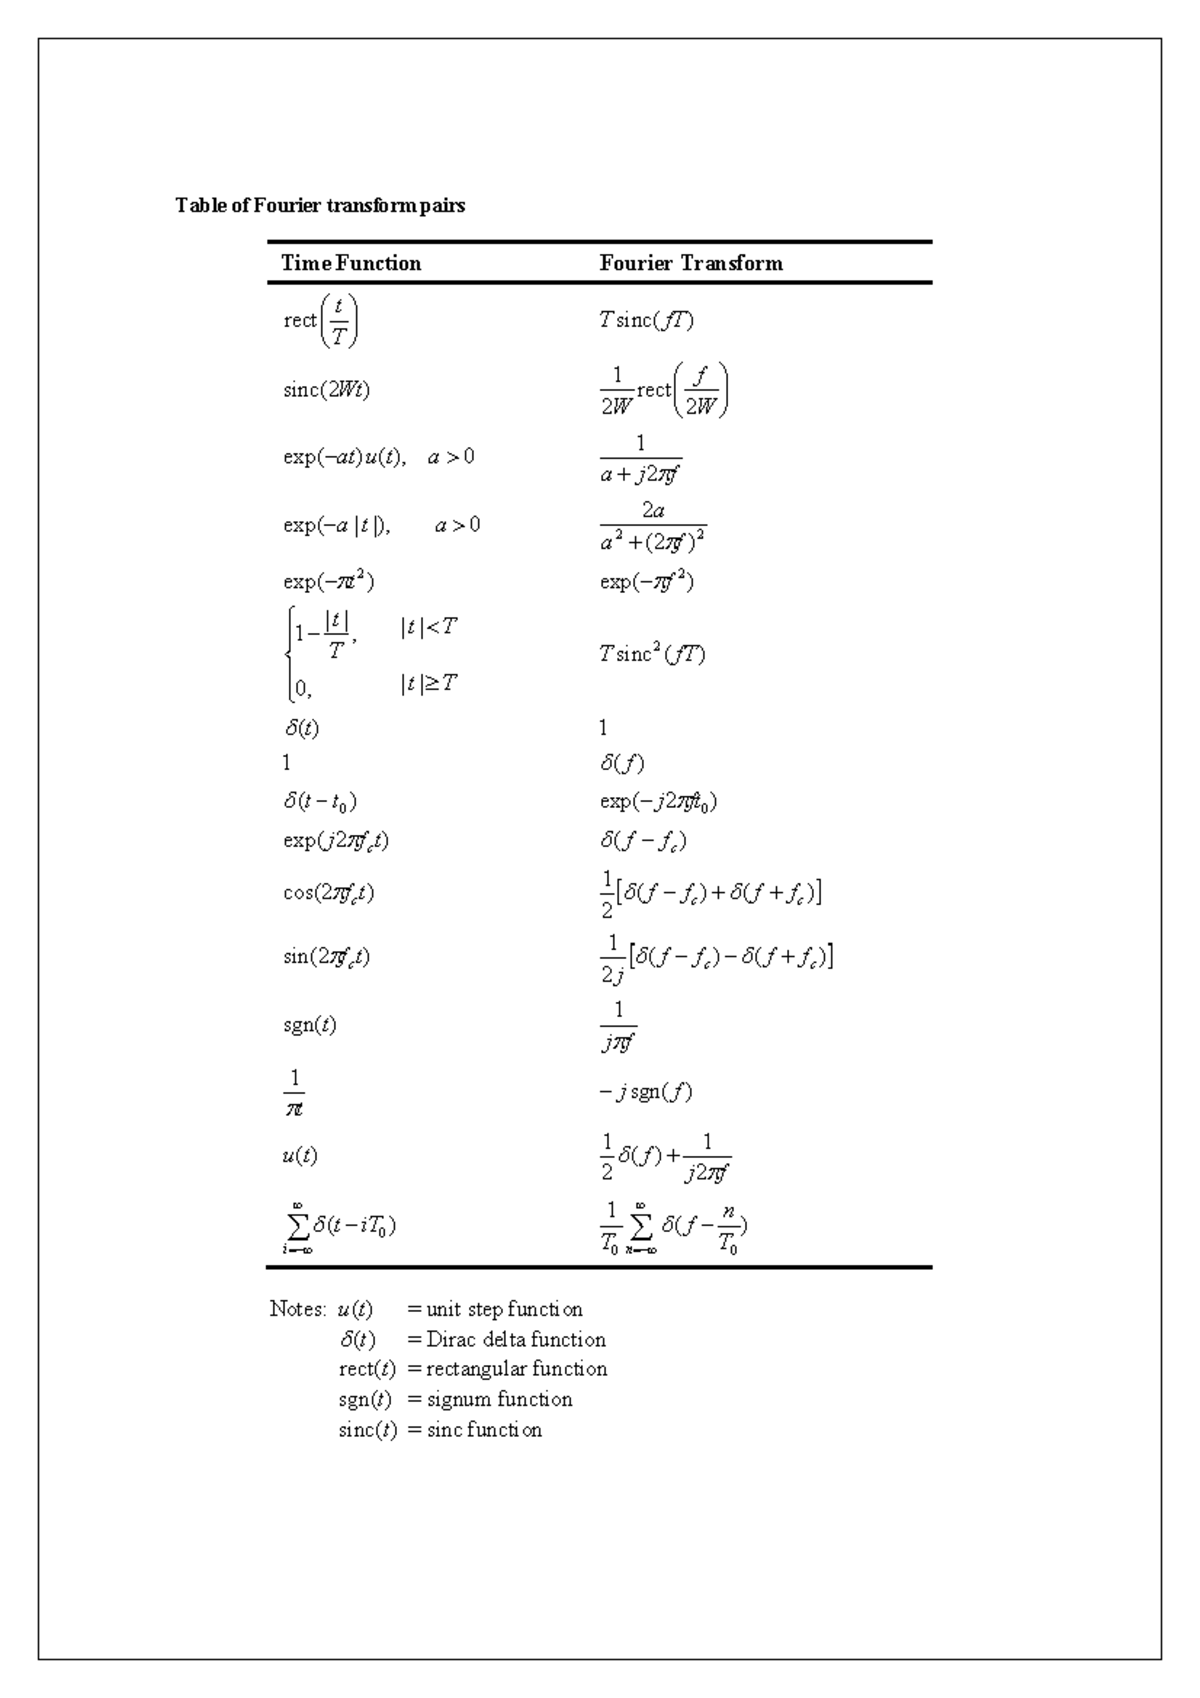 Table of Fourier transform pairs
Time Function Fourier Transform
rect(t/T) T sinc(fT)
sinc(2Wt) 1/2W rect(f/2W)
exp(−at)u(t), a > 0 1/(a + j2πf)
exp(−a | t |), a > 0 2a/(a² + (2πf)²)
exp(−πt²) exp(−πf²)
{1 − |t|/T, |t| < T
0, |t| ≥ T T sinc²(fT)
δ(t) 1
1 δ(f)
δ(t − t₀) exp(−j2πft₀)
exp(j2πf_c t) δ(f − f_c)
cos(2πf_c t) 1/2 [δ(f − f_c) + δ(f + f_c)]
sin(2πf_c t) 1/2j [δ(f − f_c) − δ(f + f_c)]
sgn(t) 1/jπf
1/πt − j sgn(f)
u(t) 1/2 δ(f) + 1/j2πf
∑_{i=−∞}^{∞} δ(t − iT₀) 1/T₀ ∑_{n=−∞}^{∞} δ(f − n/T₀)
Notes: u(t) = unit step function
δ(t) = Dirac delta function
rect(t) = rectangular function
sgn(t) = signum function
sinc(t) = sinc function